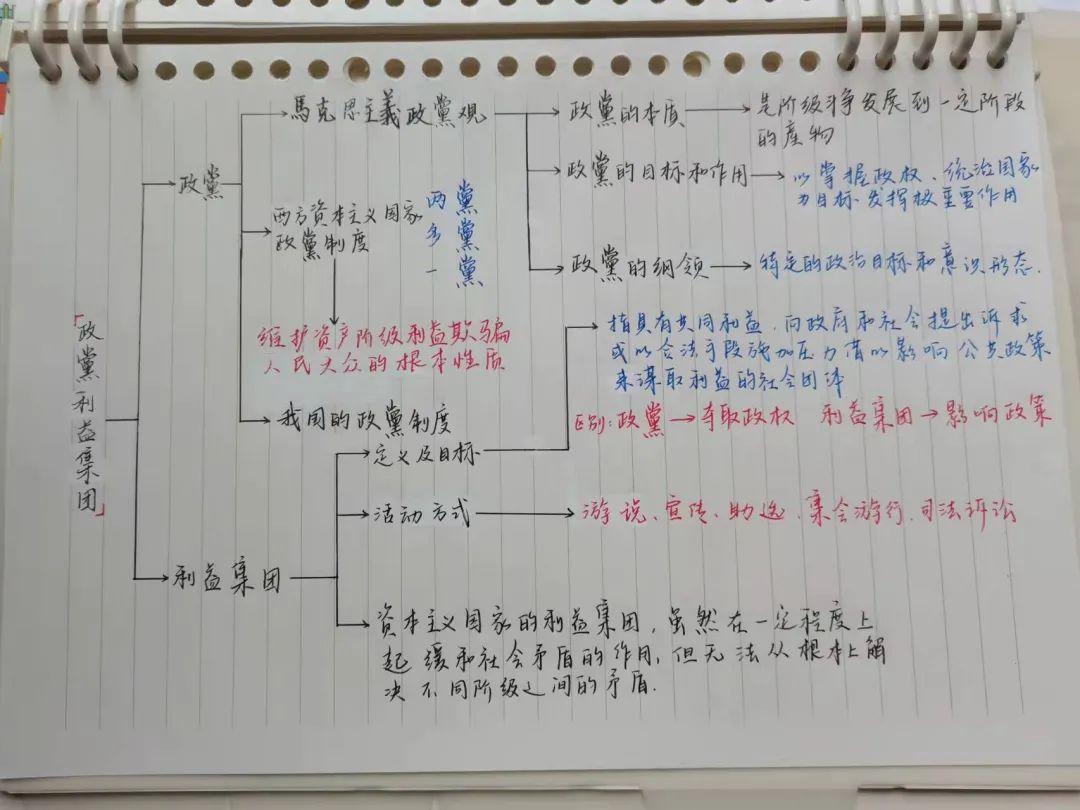 「政黨利益集团」
政黨
馬克思主義政黨观
政黨的本质
是阶级斗争发展到一定阶段
的産物
政黨的目标和作用
以掌握政权、统治国家
为目标发挥极重要作用
政黨的纲领
特定的政治目标和意识形态.
西方资本主义国家
政黨制度
两黨
多黨
一黨
维护资产阶级利益欺骗
人民大众的根本性质
我国的政黨制度
利益集团
定义及目标
指具有共同利益,向政府和社会提出诉求
或以合法手段施加压力借以影响公共政策
来谋取利益的社会团体
区别:政黨→夺取政权 利益集团→影响政策
活动方式
游说、宣传、助选、集会游行、司法诉讼
资本主义国家的利益集团,虽然在一定程度上
起缓和社会矛盾的作用,但无法从根本上解
决不同阶级之间的矛盾.